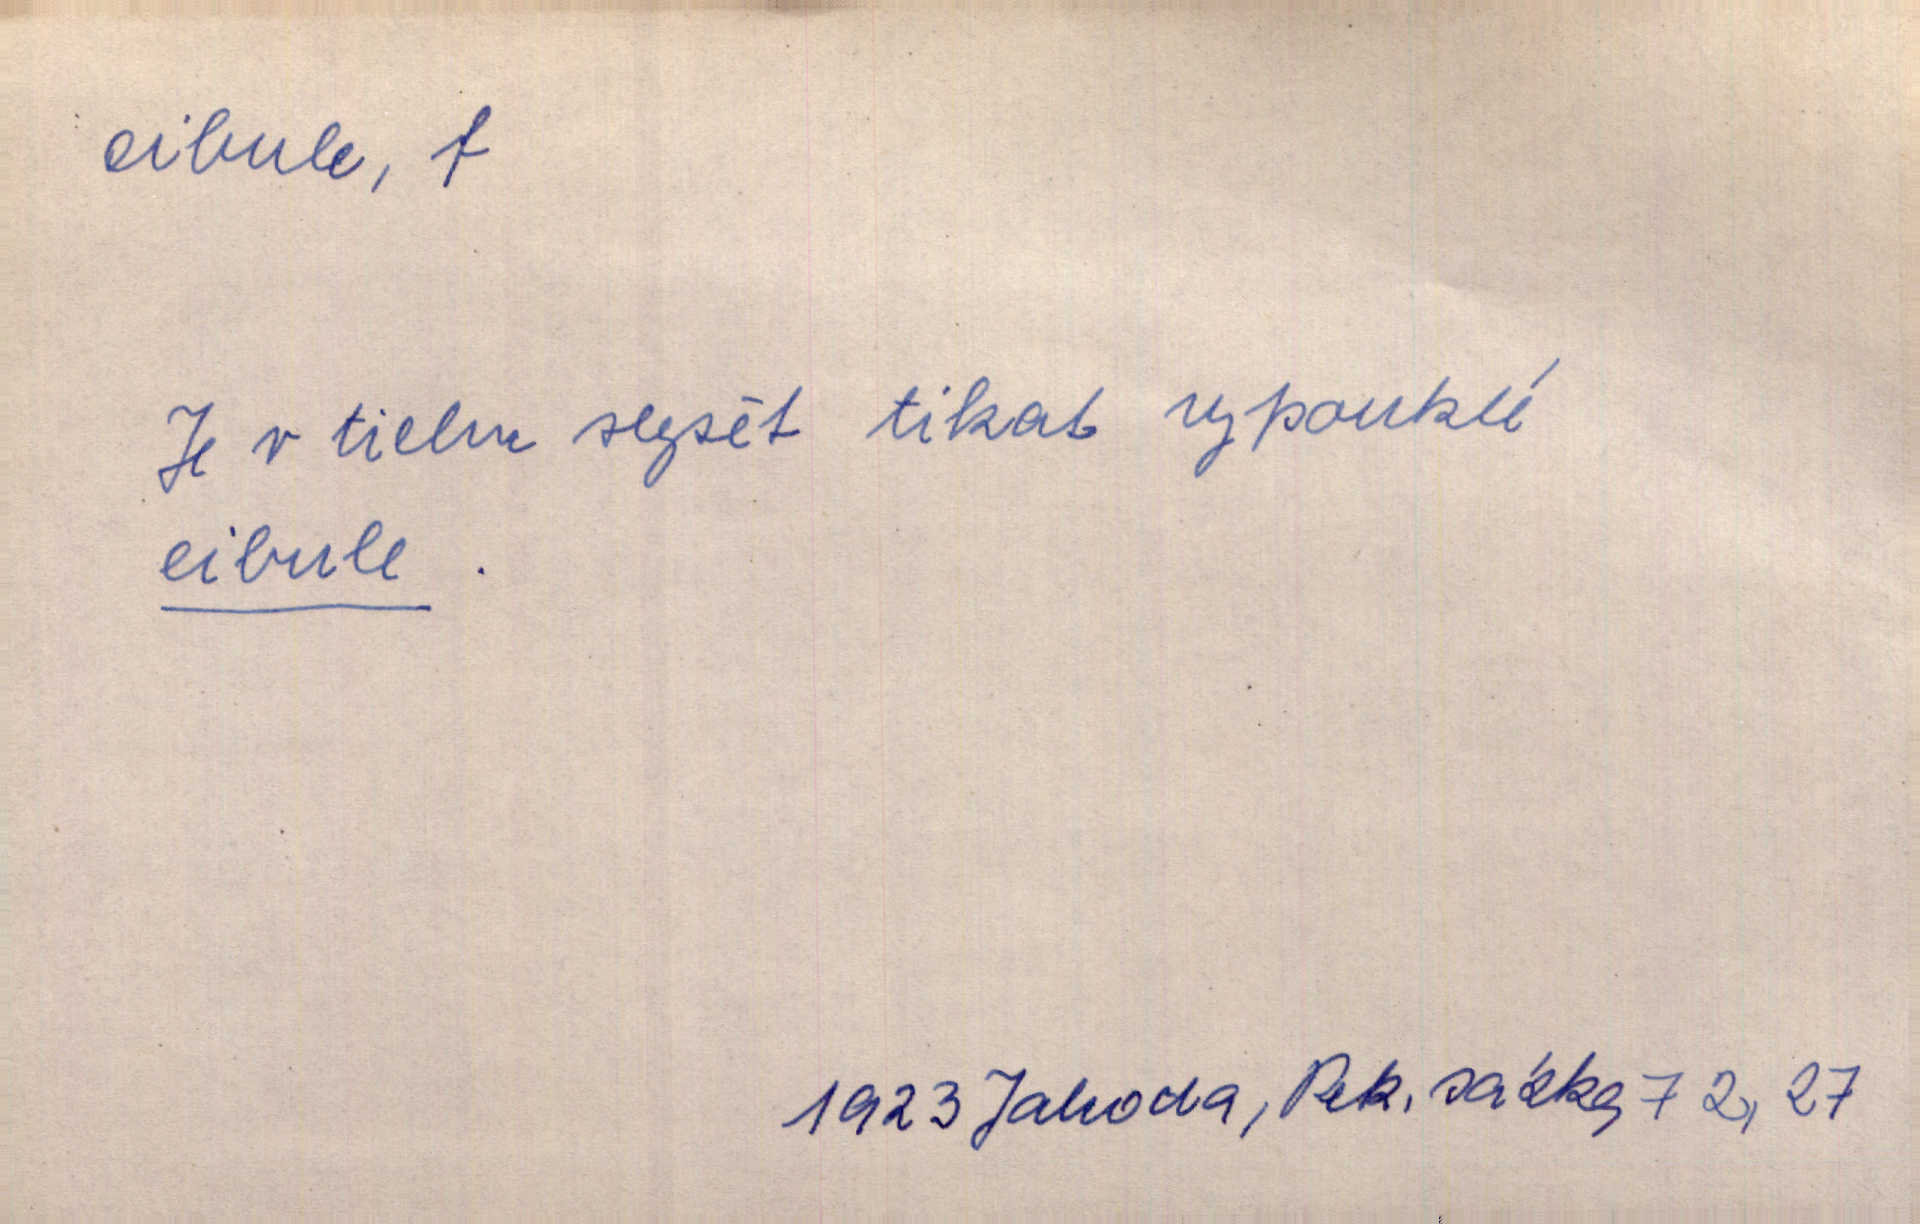 cibule, f
Je v tichu slyšet tikat vypouklé
cibule .
1923 Jahoda, Pek. sázky 7 2, 27